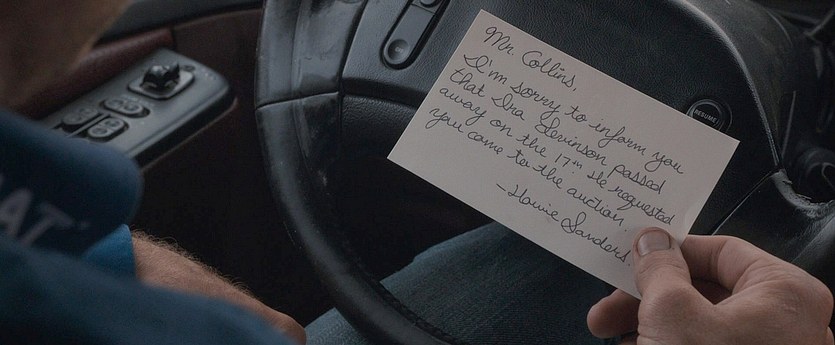 Mr. Collins,
I'm sorry to inform you
that Ira Levinson passed
away on the 17th. He requested
you come to the auction.
-Howie Sanders.
RESUME
AT